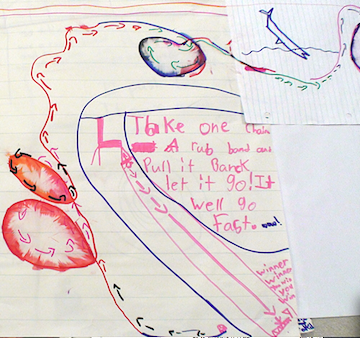 Take one chain
A rub band and
Pull it Banck
let it go! It
well go
fast. now!
winner
winner
you win